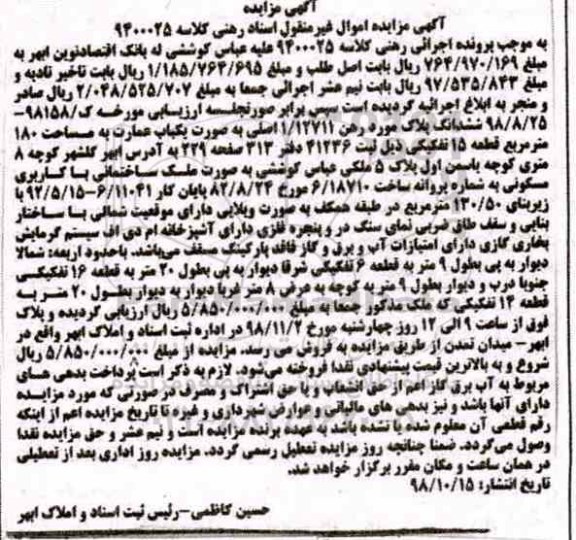 آگهی مزایده
آگهی مزایده اموال غیرمنقول اسناد رهنی کلاسه ۹۴۰۰۰۲۵
به موجب پرونده اجرائی رهنی کلاسه ۹۴۰۰۰۲۵ علیه عباس کوششی له بانک اقتصادنوین ابهر به
مبلغ ۷۶۴/۹۷۰/۱۶۹ ریال بابت اصل طلب و مبلغ ۱/۱۸۵/۷۶۴/۶۹۵ ریال بابت تاخیر تادیه و
مبلغ ۹۷/۵۳۵/۸۴۳ ریال بابت نیم عشر اجرائی جمعا به مبلغ ۲/۰۴۸/۵۲۵/۷۰۷ ریال صادر
و منجر به ابلاغ اجرائیه گردیده است سپس برابر صورتجلسه ارزیابی مورخه ک/۹۸۱۵۸-
۹۸/۸/۲۵ ششدانگ پلاک مورد رهن ۱/۱۲۷۱۱ اصلی به صورت یکباب عمارت به مساحت ۱۸۰
مترمربع قطعه ۱۵ تفکیکی ذیل ثبت ۴۱۲۳۶ دفتر ۳۱۳ صفحه ۲۲۹ به آدرس ابهر گلشهر کوچه ۸
متری کوچه یاسمن اول پلاک ۵ ملکی عباس کوششی به صورت ملک ساختمانی با کاربری
مسکونی به شماره پروانه ساخت ۶/۱۸۷۱۰ مورخ ۸۲/۸/۲۴ پایان کار ۶/۱۱۰۴۱-۹۲/۵/۱۵ با
زیربنای ۱۳۰/۵۰ مترمربع در طبقه همکف به صورت ویلایی دارای موقعیت شمالی با ساختار
بنایی و سقف طاق ضربی نمای سنگ در و پنجره فلزی دارای آشپزخانه ام دی اف سیستم گرمایش
بخاری گازی دارای امتیازات آب و برق و گاز فاقد پارکینگ مسقف می‌باشد. باحدود اربعه: شمالا
دیوار به پی بطول ۹ متر به قطعه ۶ تفکیکی شرقا دیوار به پی بطول ۲۰ متر به قطعه ۱۶ تفکیکی
جنوبا درب و دیوار بطول ۹ متر به کوچه به عرض ۸ متر غربا دیوار به دیوار بطول ۲۰ متر به
قطعه ۱۴ تفکیکی که ملک مذکور جمعا به مبلغ ۵/۸۵۰/۰۰۰/۰۰۰ ریال ارزیابی گردیده و پلاک
فوق از ساعت ۹ الی ۱۲ روز چهارشنبه مورخ ۹۸/۱۱/۲ در اداره ثبت اسناد و املاک ابهر واقع در
ابهر - میدان تمدن از طریق مزایده به فروش می رسد. مزایده از مبلغ ۵/۸۵۰/۰۰۰/۰۰۰ ریال
شروع و به بالاترین قیمت پیشنهادی نقدا فروخته می‌شود. لازم به ذکر است پرداخت بدهی های
مربوط به آب برق گاز اعم از حق انشعاب و یا حق اشتراک و مصرف در صورتی که مورد مزایده
دارای آنها باشد و نیز بدهی های مالیاتی و عوارض شهرداری و غیره تا تاریخ مزایده اعم از اینکه
رقم قطعی آن معلوم شده یا نشده باشد به عهده برنده مزایده است و نیم عشر و حق مزایده نقدا
وصول می‌گردد. ضمنا چنانچه روز مزایده تعطیل رسمی گردد. مزایده روز اداری بعد از تعطیلی
در همان ساعت و مکان مقرر برگزار خواهد شد.
تاریخ انتشار: ۹۸/۱۰/۱۵
حسین کاظمی-رئیس ثبت اسناد و املاک ابهر